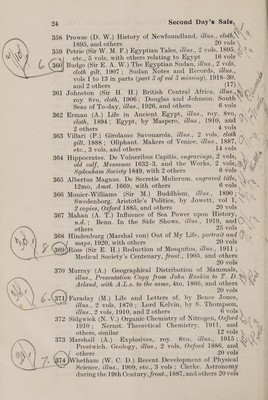 24 Second Day's Sale
358 Prowse (D. W.) History of Newfoundland, illus., cloth,
1895, and others 20 vols
359 Petrie (Sir W. M. F.) Egyptian Tales, illus., 2 vols, 1895,
etc., 5 vols, with others relating to Egypt 16 vols
360 Budge (Sir E. A. W.) The Egyptian Sudan, illus., 2 vols,
cloth gilt, 1907 ; Sudan Notes and Records, illus.,
vols 1 to 13 in parts (part 3 of vol 3 missing), 1918-30,
and 2 others (17)
361 Johnston (Sir H. H.) British Central Africa, illus.,
roy 8vo, cloth, 1906 ; Douglas and Johnson. South
Seas of To-day, illus., 1926, and others 6 vols
362 Erman (A.) Life in Ancient Egypt, illus., roy. 8vo,
cloth, 1894 ; Egypt, by Maspero, illus., 1910, and
2 others 4 vols
363 Villari (P.) Girolamo Savonarola, illus., 2 vols, cloth
gilt, 1888 ; Oliphant. Makers of Venice, illus., 1887,
etc., 3 vols, and others 14 vols
364 Hippocrates. De Vulneribus Capitis, engravings, 2 vols,
old calf, Messanae 1632-3, and the Works, 2 vols,
Sydenham Society 1849, with 2 others 6 vols
365 Albertus Magnus. De Secretis Mulierum, engraved title,
12mo, Amst. 1669, with others 6 vols
366 Monier-Williams (Sir M.) Buddhism, illus., 1890 ;
Swedenborg. Aristotle's Politics, by Jowett, vol 1,
2 copies, Oxford 1885, and others 20 vols
367 Mahan (A. T.) Influence of Sea Power upon History,
n.d. ; Benn. In the Side Shows, illus., 1910, and
others 25 vols
368 Hindenburg (Marshal von) Out of My Life, portrait and
maps, 1920, with others 20 vols
369 Ross (Sir E. H.) Reduction of Mosquitos, illus., 1911 ;
Medical Society's Centenary, front., 1905. and others
20 vols
370 Murray (A.) Geographical Distribution of Mammals,
illus., Presentation Copy from John Ruskin to T. D.
Acland, with A.L.s. to the same, 4to, 1866, and others
20 vols
371 Faraday (M.) Life and Letters of, by Bence Jones,
illus., 2 vols, 1870 ; Lord Kelvin, by S. Thompson,
illus., 2 vols, 1910, and 2 others 6 vols
372 Sidgwick (N. V.) Organic Chemistry of Nitrogen, Oxford
1910 ; Nernst. Theoretical Chemistry, 1911, and
others, similar 12 vols
373 Marshall (A.) Explosives, roy. 8vo, illus., 1915 ;
Prestwich. Geology, illus., 2 vols, Oxford 1886, and
others 20 vols
374 Whetham (W. C. D.) Recent Development of Physical
Science, illus., 1909, etc., 3 vols ; Clerke. Astronomy
during the 19th Century, front., 1887, and others 20 vols